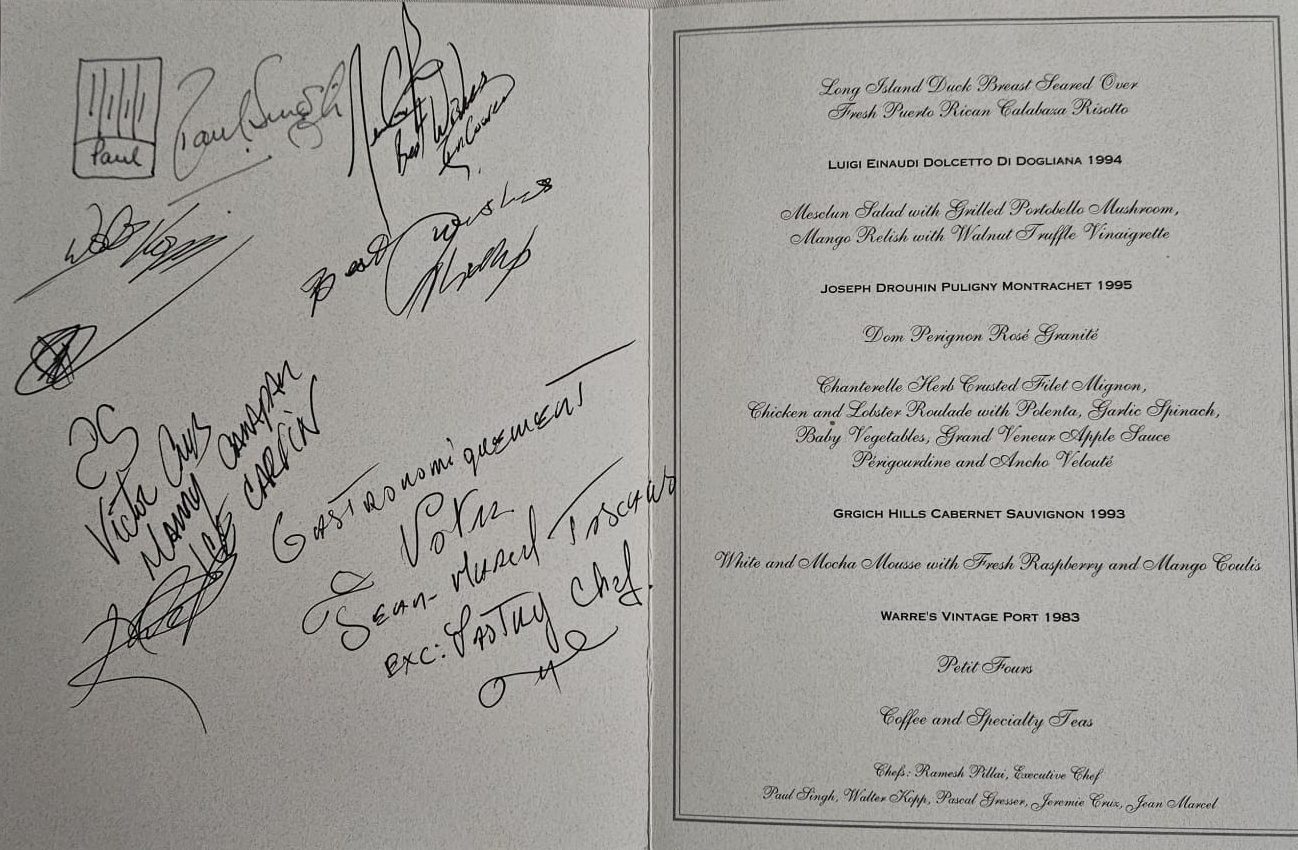 Paul
Paul Singh
Best Wishes
Best wishes
Victor Cruz
Manny
Gastronomiquement
Votre
Jean-Marcel
exc: Pastry Chef.
Long Island Duck Breast Seared Over
Fresh Puerto Rican Calabaza Risotto
LUIGI EINAUDI DOLCETTO DI DOGLIANA 1994
Mesclun Salad with Grilled Portobello Mushroom,
Mango Relish with Walnut Truffle Vinaigrette
JOSEPH DROUHIN PULIGNY MONTRACHET 1995
Dom Perignon Rosé Granité
Chanterelle Herb Crusted Filet Mignon,
Chicken and Lobster Roulade with Polenta, Garlic Spinach,
Baby Vegetables, Grand Veneur Apple Sauce
Périgourdine and Ancho Velouté
GRGICH HILLS CABERNET SAUVIGNON 1993
White and Mocha Mousse with Fresh Raspberry and Mango Coulis
WARRE'S VINTAGE PORT 1983
Petit Fours
Coffee and Specialty Teas
Chefs: Ramesh Pillai, Executive Chef
Paul Singh, Walter Kopp, Pascal Gresser, Jeremie Cruz, Jean Marcel